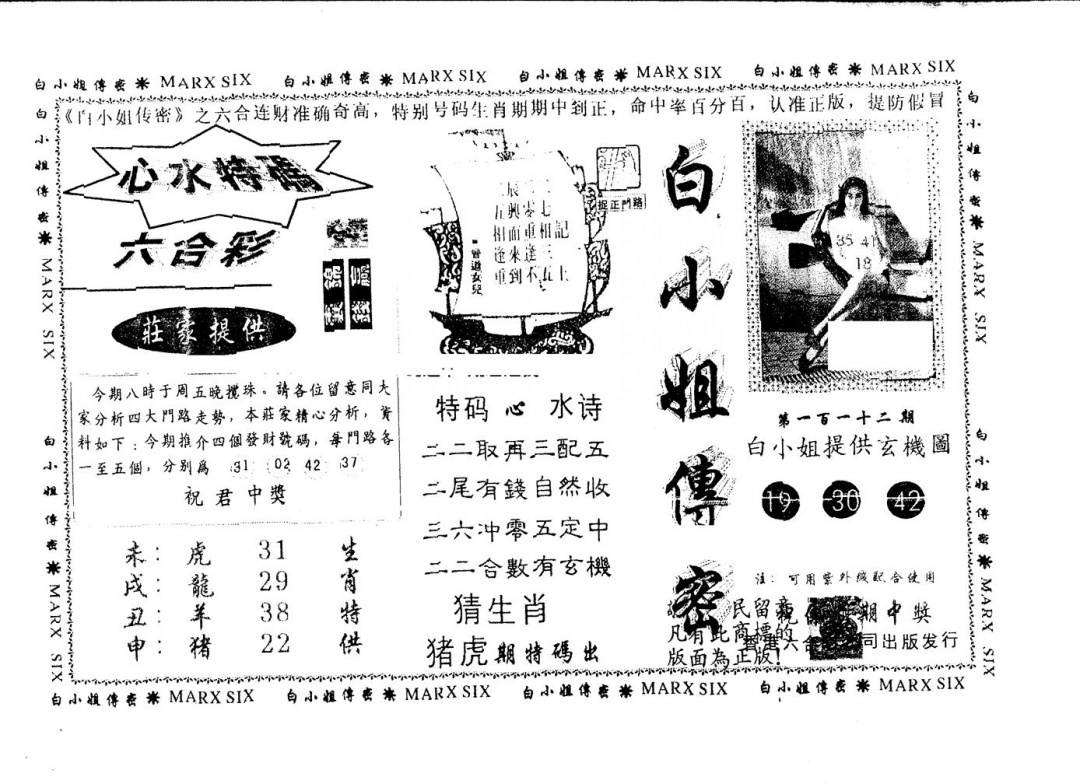 白小姐傳密 ✷ MARX SIX 白小姐傳密 ✷ MARX SIX 白小姐傳密 ✷ MARX SIX 白小姐傳密 ✷ MARX SIX
《白小姐传密》之六合连财准确奇高，特别号码生肖期期中到正，命中率百分百，认准正版，提防假冒
白小姐傳密 ✷ MARX SIX
白小姐傳密 ✷ MARX SIX
心水特碼
六合彩
莊家提供
今期八時于周五晚攪珠。請各位留意同大
家分析四大門路走勢，本莊家精心分析，資
料如下：今期推介四個發財號碼，每門路各
一至五個，分别爲 31 02 42 37
祝君中獎
未： 虎 31 生
戌： 龍 29 肖
丑： 羊 38 特
申： 猪 22 供
捉正門路
五興零七
相而重相記
逢來逢三
重到不五上
曾道女兒
特码心水诗
二二取再三配五
二尾有錢自然收
三六冲零五定中
二二合數有玄機
猜生肖
猪虎期特碼出
白小姐傳密
35 41
18
第一百一十二期
白小姐提供玄機圖
19 30 42
注：可用紫外綫配合使用
民留意
期中獎
凡有此商標的
版面為正版!
香港六合
司出版发行
白小姐傳密 ✷ MARX SIX
白小姐傳密 ✷ MARX SIX
白小姐傳密 ✷ MARX SIX 白小姐傳密 ✷ MARX SIX 白小姐傳密 ✷ MARX SIX 白小姐傳密 ✷ MARX SIX